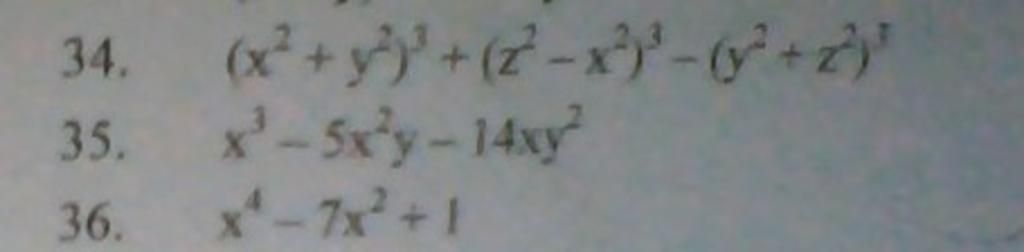 34. (x² + y²)³ + (z² – x²)³ – (y² + z²)³
35. x³ – 5x²y – 14xy²
36. x⁴ – 7x² + 1